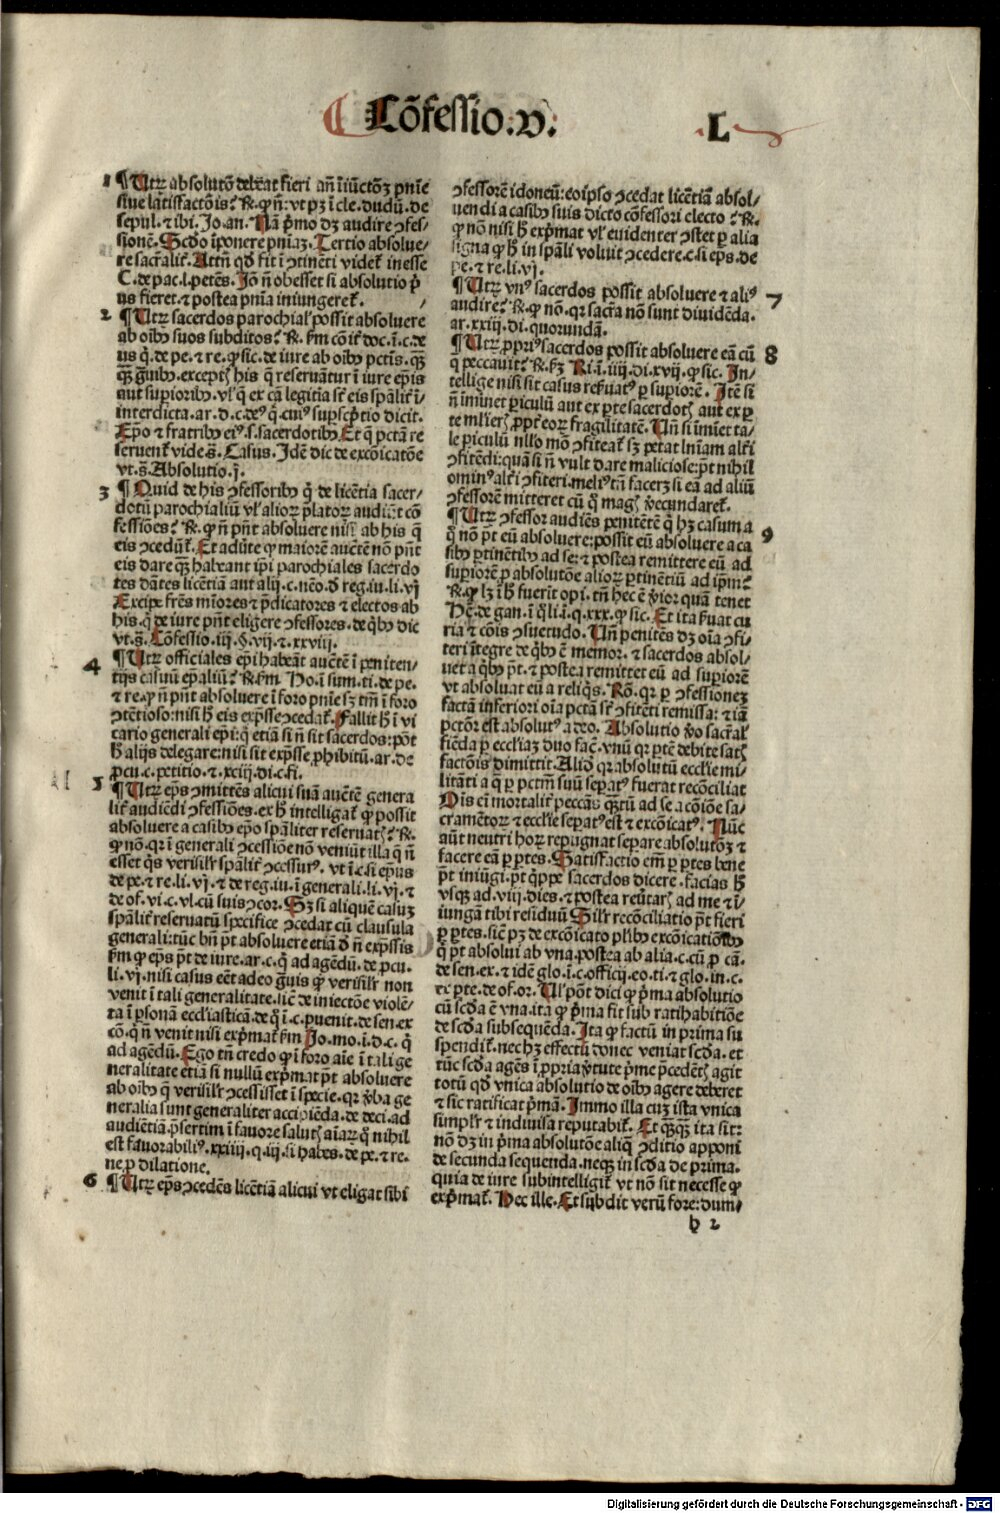 Cōfessio.v.
L
1 ¶ Utrꝝ absolutō debeat fieri añ īiūctōꝫ pnīe
siue satisfactōis? R̄. ꝙ ñ: vt pꝫ ī cle. dudū. de
sepul. ⁊ ibi. Jo. an. Nā p̄mo dꝫ audire ↄfes-
sionē. Scd̄o īponere pnīaꝫ. Tertio absolue/
re sacr̄alit̄. Attñ qd̄ fit ī ↄtinēti videt̄ inesse
C. de pac. l. petēs. Jō ñ obesset si absolutio p̄
us fieret. ⁊ postea pnīa iniungeret̄.
2 ¶ Utꝝ sacerdos parochial̓ possit absoluere
ab oībꝰ suos subditos? R̄. ẜm cōit̄ doc. ī. c. de
us q̄. de pe. ⁊ re. ꝙ sic. de iure ab oībꝰ pctīs. q̄ꝫ
q̄ꝫ gͣuibꝰ. exceptꝭ his q̄ reseruātur ī iure ep̄is
aut supioribꝰ. vl̓ q̄ ex cā legitīa sr̄ eis spālit̄ ī/
interdicta. ar. d. c. deꝰ q̄. cuiꝰ sup̄scp̄tio dicit.
Ep̄o ⁊ fratribꝰ eiꝰ. s. sacerdotibꝰ Et q̄ pctā re
seruent̄ vide s̄. Casus. Idē dic de excōicatōe
vt. s̄. Absolutio. j.
3 ¶ Quid de his ↄfessoribꝰ q̄ de licētia sacer/
dotū parochialiū vl̓ alioꝝ p̄latoꝝ audiūt cō
fessiōes? R̄. ꝙ ñ pñt absoluere nisi ab his q̄
eis ↄcedūt̄. Et adūte ꝙ maiorē auctētē nō pñt
eis dare q̄ꝫ habeant ip̄i parochiales sacerdo
tes dātes licētiā aut alij. c. nēo. đ reg. iu. li. vj
Excipe fr̄es mīores ⁊ p̄dicatores ⁊ electos ab
his. q̄ de iure pñt eligere ↄfessores. de q̄bꝰ dic
vt. s̄. Cōfessio. iij. §. vij. ⁊. xxviij.
4 ¶ Utꝝ officiales ep̄i habeāt auctētē ī peniten-
tijs casuū ep̄aliū? R̄. ẜm Ho. ī sum. ti. de pe.
⁊ re. ꝙ ñ pñt absoluere ī foro pnīe sꝫ tm̄ ī foro
ↄtētioso: nisi h̄ eis exp̄sse ↄcedat̄. Fallit h̄ ī vi
cario generali ep̄i: q̄ etiā si ñ sit sacerdos: pōt
h̄ alijs delegare: nisi sit exp̄sse ꝓhibitū. ar. de
ꝓcu. c. petitio. ⁊. xciij. di. c. fi.
5 ¶ Utꝝ ep̄s ↄmittēs alicui suā auctētē genera
lit̄ audiēdi ↄfessiōes. ex h̄ intelligat̄ ꝙ possit
absoluere a casibꝰ ep̄o spāliter reseruatꝭ? R̄.
ꝙ nō. qꝛ ī generali ↄcessiōe nō veniūt illa q̄ ñ
esset q̄s verisil̓r spālit̄ ↄcessurꝰ. vt ī. c. si ep̄us
de pe. ⁊ re. li. vj. ⁊ de reg. iu. ī generali. li. vj. ⁊
de of. vi. c. vl. cū suis ↄcor. Sꝫ si aliquē casuꝫ
spālit̄ reseruatū specifice ↄcedat cū clausula
generali: tūc bñ pt̄ absoluere etiā đ ñ exp̄ssis
ẜm ꝙ ep̄s pt̄ de iure. ar. c. q̄ ad agēdū. de ꝓcu.
li. vj. nisi casus eēt adeo gͣuis ꝙ verisil̓r non
venit ī tali generalitate. licꝫ de iniectōe violē-
ta ī ꝑsonā eccl̓iasticā. de q̄ ī. c. ꝑuenit. de sen. ex
cō. q̄ ñ venit nisi exp̄mat̄ ẜm Jo. mo. ī. d. c. q̄
ad agēdū. Ego tñ credo ꝙ ī foro aīe ī tali ge
neralitate etiā si nullū exp̄mat̄ pt̄ absoluere
ab oībꝰ q̄ verisil̓r ↄcessisset ī specie. qꝛ v̄ba ge
neralia sunt generaliter accipiēda. de deci. ad
audiētiā. p̄sertim ī fauore salutꝭ aīarꝝ q̄ nihil
est fauorabiliꝰ. xxiiij. q. iij. si habes. de pe. ⁊ re.
ne ꝓ dilatione.
6 ¶ Utꝝ ep̄s ↄcedēs licētiā alicui vt eligat sibi
ↄfessorē idoneū: eoip̄so ↄcedat licētiā absol-
uendi a casibꝰ suis dicto cōfessori electo? R̄.
ꝙ nō nisi h̄ exp̄mat vl̓ euidenter ↄstet ꝑ alia
signa ꝙ h̄ in spāli voluit ↄcedere. c. si ep̄s. de
pe. ⁊ re. li. vj.
¶ Utꝝ vnꝰ sacerdos possit absoluere ⁊ aliꝰ 7
audire? R̄. ꝙ nō. qꝛ sacr̄a nō sunt diuidēda.
ar. xxiij. di. quorundā.
¶ Utꝝ ꝓpriꝰ sacerdos possit absoluere eā cū 8
q̄ peccauit? R̄. ẜꝫ Ri. ī. iiij. di. xvij. ꝙ sic. In-
tellige nisi sit casus reẜuatꝰ ꝑ superiorē. Itē si
ñ iminet ꝑiculū aut ex ꝑte sacerdotꝭ aut ex ꝑ
te ml̓ierꝭ ꝓpt̄ eoꝝ fragilitatē. Uñ si imīet ta-
le ꝑiculū nllo mō ↄfiteat̄ sꝫ petat lnīam alt̄i
ↄfitēdi: quā si ñ vult dare maliciose: pt̄ nihil
ominꝰ alt̄i ↄfiteri. meliꝰ tñ facerꝫ si eā ad aliū
ↄfessorē mitteret cū q̄ magꝭ v̄ecundaret̄.
¶ Utꝝ ↄfessor audiēs penitētē q̄ hꝫ casum a 9
q̄ nō pt̄ eū absoluere: possit eū absoluere a ca
sibꝰ ꝑtinētibꝰ ad se: ⁊ postea remittere eū ad
supiorē ꝓ absolutōe alioꝝ ꝑtinētiū ad ip̄m?
R̄. ꝙ lꝫ ī h̄ fuerīt opi. tñ hec ē v̄ior quā tenet
Hē. de gan. ī q̄li. ī. q. xxx. ꝙ sic. Et ita ẜuat cu
ria ⁊ cōis ↄsuetudo. Uñ penitēs dꝫ oīa ↄfi-
teri ītegre de q̄bꝰ ē memor. ⁊ sacerdos absol-
uet a q̄bꝰ pt̄. ⁊ postea remittet eū ad supiorē
vt absoluat eū a reliq̄s. Rō. qꝛ ꝑ ↄfessioneꝫ
factā inferiori oīa pctā sr̄ ↄfitēti remissa: ⁊ iā
pctōr est absolutꝰ a deo. Absolutio v̄o sacr̄al̓
fiēda ꝑ eccl̓iaꝫ duo fac̄. vnū qꝛ ptē debite satꝭ
factōis dimittit. Aliō qꝛ absolutū eccl̓ie mi-
litāti a q̄ ꝑ pctm̄ suū sepatꝰ fuerat recōciliat
Oīs em̄ mortalit̄ peccās q̄ꝫtū ad se a cōiōe sa-
cramētoꝝ ⁊ eccl̓ie sepatꝰ est ⁊ excōicatꝰ. Nūc
aūt neutri hoꝝ repugnat separe absolutōꝫ ⁊
facere eā ꝑ ꝑtes. Satisfactio em̄ ꝑ ꝑtes bene
pt̄ iniūgi. pt̄ q̄ppe sacerdos dicere. facias h̄
vsqꝫ ad. viij. dies. ⁊ postea reūtarꝭ ad me ⁊ ī-
iungā tibi residuū Sil̓r recōciliatio pt̄ fieri
ꝑ ꝑtes. sicē pꝫ de excōicato pl̓ibꝰ excōicatiōibꝰ
q̄ pt̄ absolui ab vna. postea ab alia. c. cū ꝓ cā.
de sen. ex. ⁊ idē glo. ī. c. officij. eo. ti. ⁊ glo. in. c.
ex ꝑte. de of. or. Ul̓ pōt dici ꝙ p̄ma absolutio
cū scd̄a ē vna. ita ꝙ p̄ma fit sub ratihabitiōe
de scd̄a subsequēda. Ita ꝙ factū in prima su
spendit̄. nec hꝫ effectū donec veniat scd̄a. et
tūc scd̄a agēs ī ꝓpria v̄tute p̄me p̄cedētꝭ agit
totū qd̄ vnica absolutio de oībꝰ agere deberet
⁊ sic ratificat p̄mā. Immo illa cuꝫ ista vnica
simpl̓r ⁊ indiuisa reputabit̄. Et q̄ꝫq̄ꝫ ita sit:
nō dꝫ in p̄ma absolutōe aliq̄ ↄditio apponi
de secunda sequenda. neqꝫ in scd̄a de prima.
quia de iure subintelligit̄ vt nō sit necesse ꝙ
exp̄mat̄. Hec ille. Et subdit verū fore: dum/
h 2
Digitalisierung gefördert durch die Deutsche Forschungsgemeinschaft - DFG